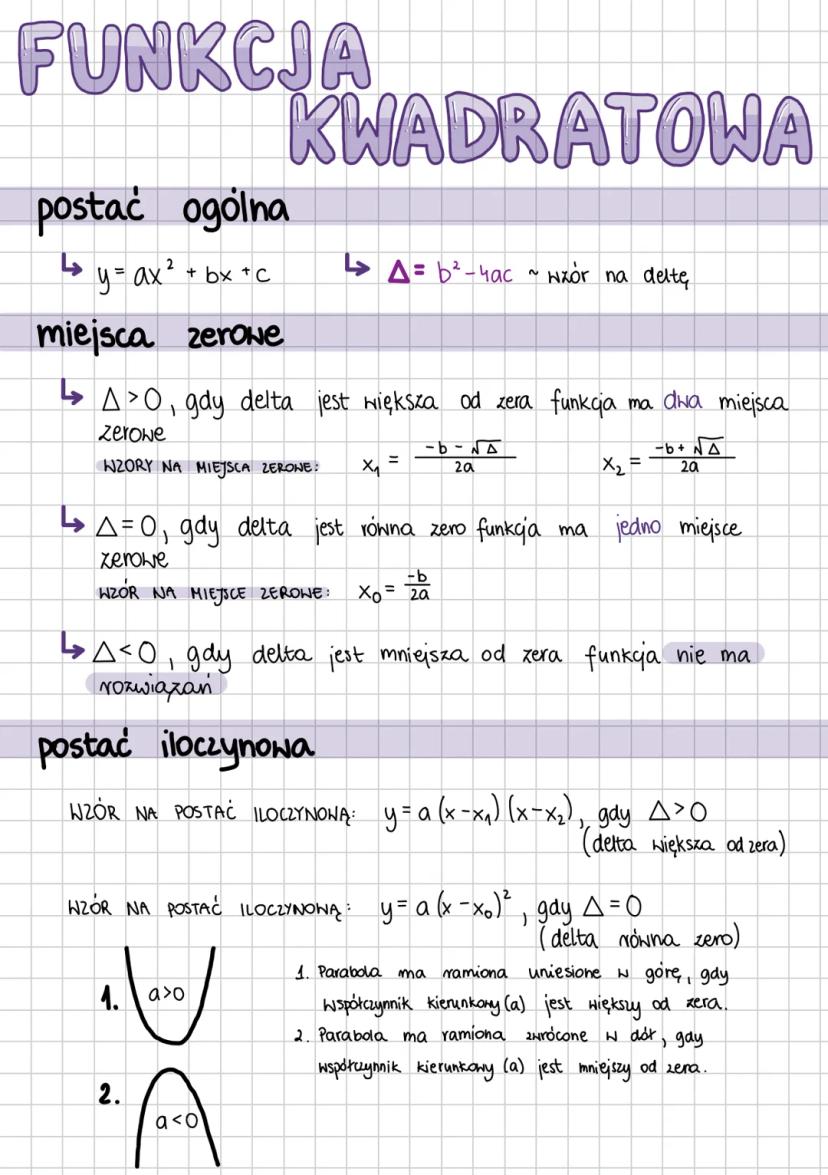 FUNKCJA
KWADRATOWA
postać ogólna
↳ y = ax² + bx + c ↳ Δ = b² - 4ac ~ wzór na deltę
miejsca zerowe
↳ Δ > 0, gdy delta jest większa od zera funkcja ma dwa miejsca
zerowe
WZORY NA MIEJSCA ZEROWE: x₁ = (-b - √Δ)/2a x₂ = (-b + √Δ)/2a
↳ Δ = 0, gdy delta jest równa zero funkcja ma jedno miejsce
zerowe
WZÓR NA MIEJSCE ZEROWE: x₀ = -b/2a
↳ Δ < 0, gdy delta jest mniejsza od zera funkcja nie ma
rozwiązań
postać iloczynowa
WZÓR NA POSTAĆ ILOCZYNOWĄ: y = a (x - x₁) (x - x₂), gdy Δ > 0
(delta większa od zera)
WZÓR NA POSTAĆ ILOCZYNOWĄ: y = a (x - x₀)², gdy Δ = 0
(delta równa zero)
1. a>0
1. Parabola ma ramiona uniesione w górę, gdy
współczynnik kierunkowy (a) jest większy od zera.
2. Parabola ma ramiona zwrócone w dół, gdy
współczynnik kierunkowy (a) jest mniejszy od zera.
2. a<0